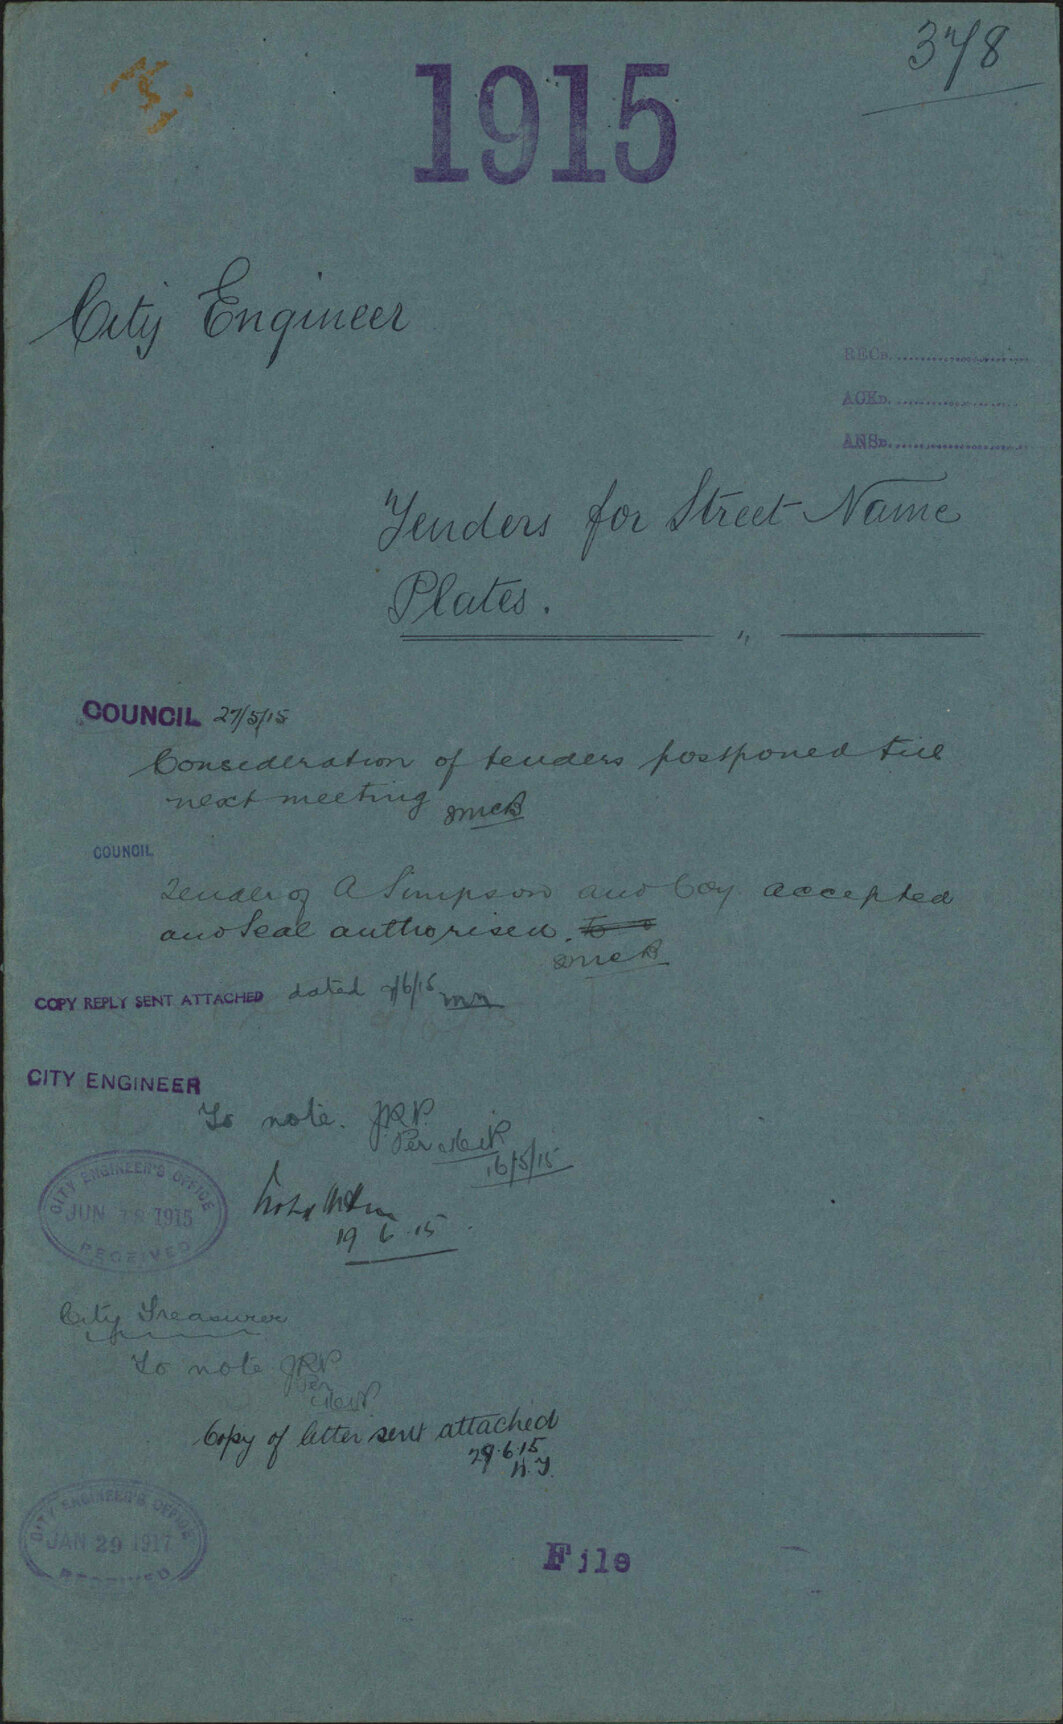 378
1915
City Engineer
RECD.
ACKD.
ANSD.
Tenders for Street Name
Plates.
COUNCIL 27/5/15
Consideration of tenders postponed till
next meeting
COUNCIL
Tender of A Simpson and Coy accepted
and Seal authorised.
COPY REPLY SENT ATTACHED dated /6/15
CITY ENGINEER
To note. JRP.
Per
16/5/15
CITY ENGINEER'S OFFICE
JUN 18 1915
RECEIVED
19 6 15
City Treasurer
To note JRP
Per
Copy of letter sent attached
29.6.15
CITY ENGINEER'S OFFICE
JAN 29 1917
RECEIVED
File